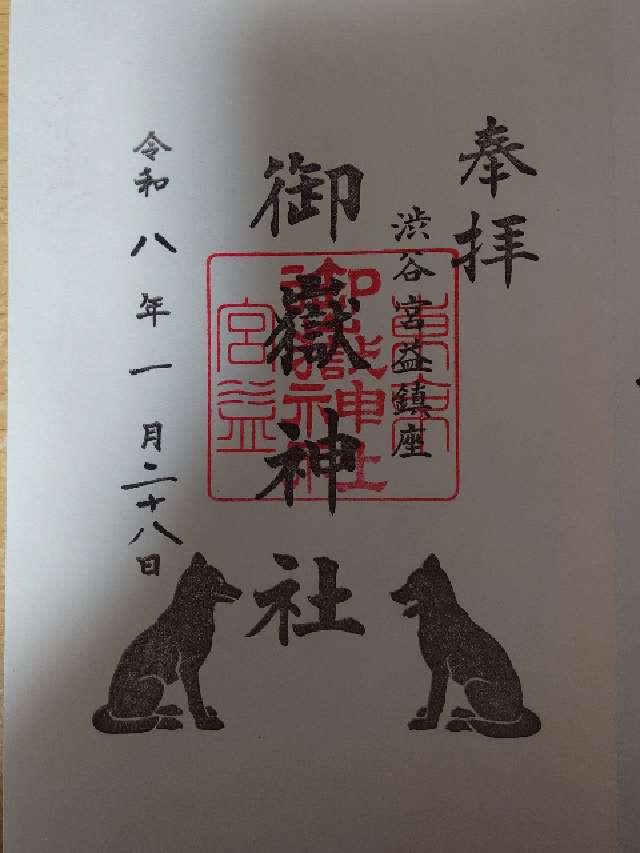 奉拝
渋谷宮益鎮座
御嶽神社
東京
御嶽神社
宮益
令和八年一月二十八日